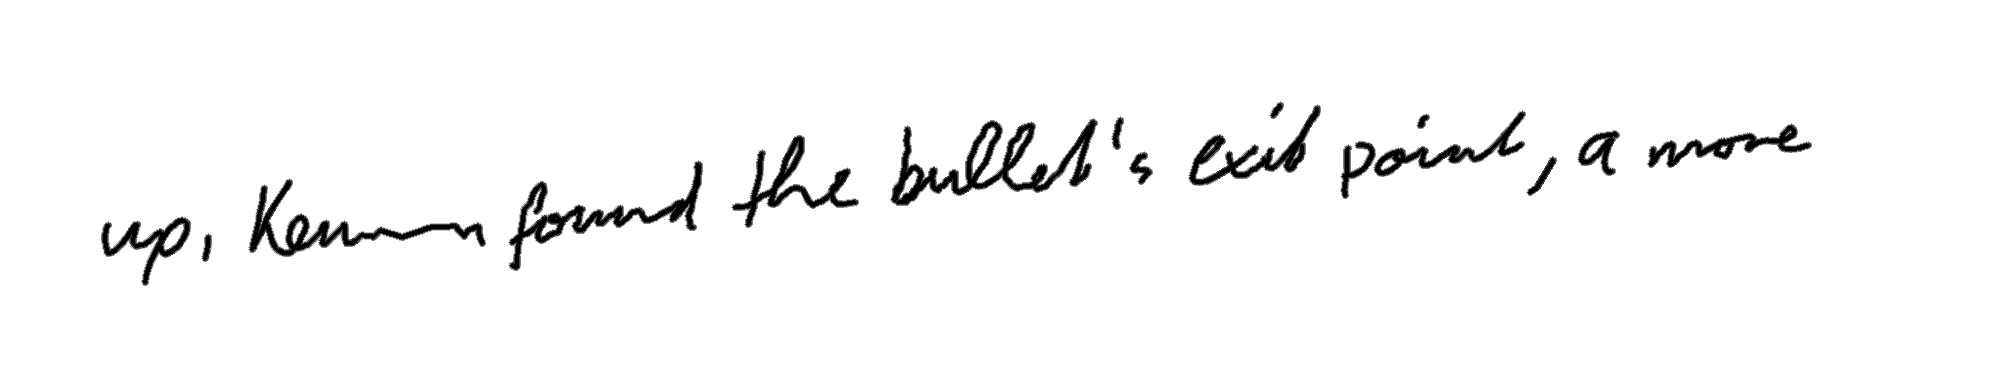 up, found the bullet's exit point, a more